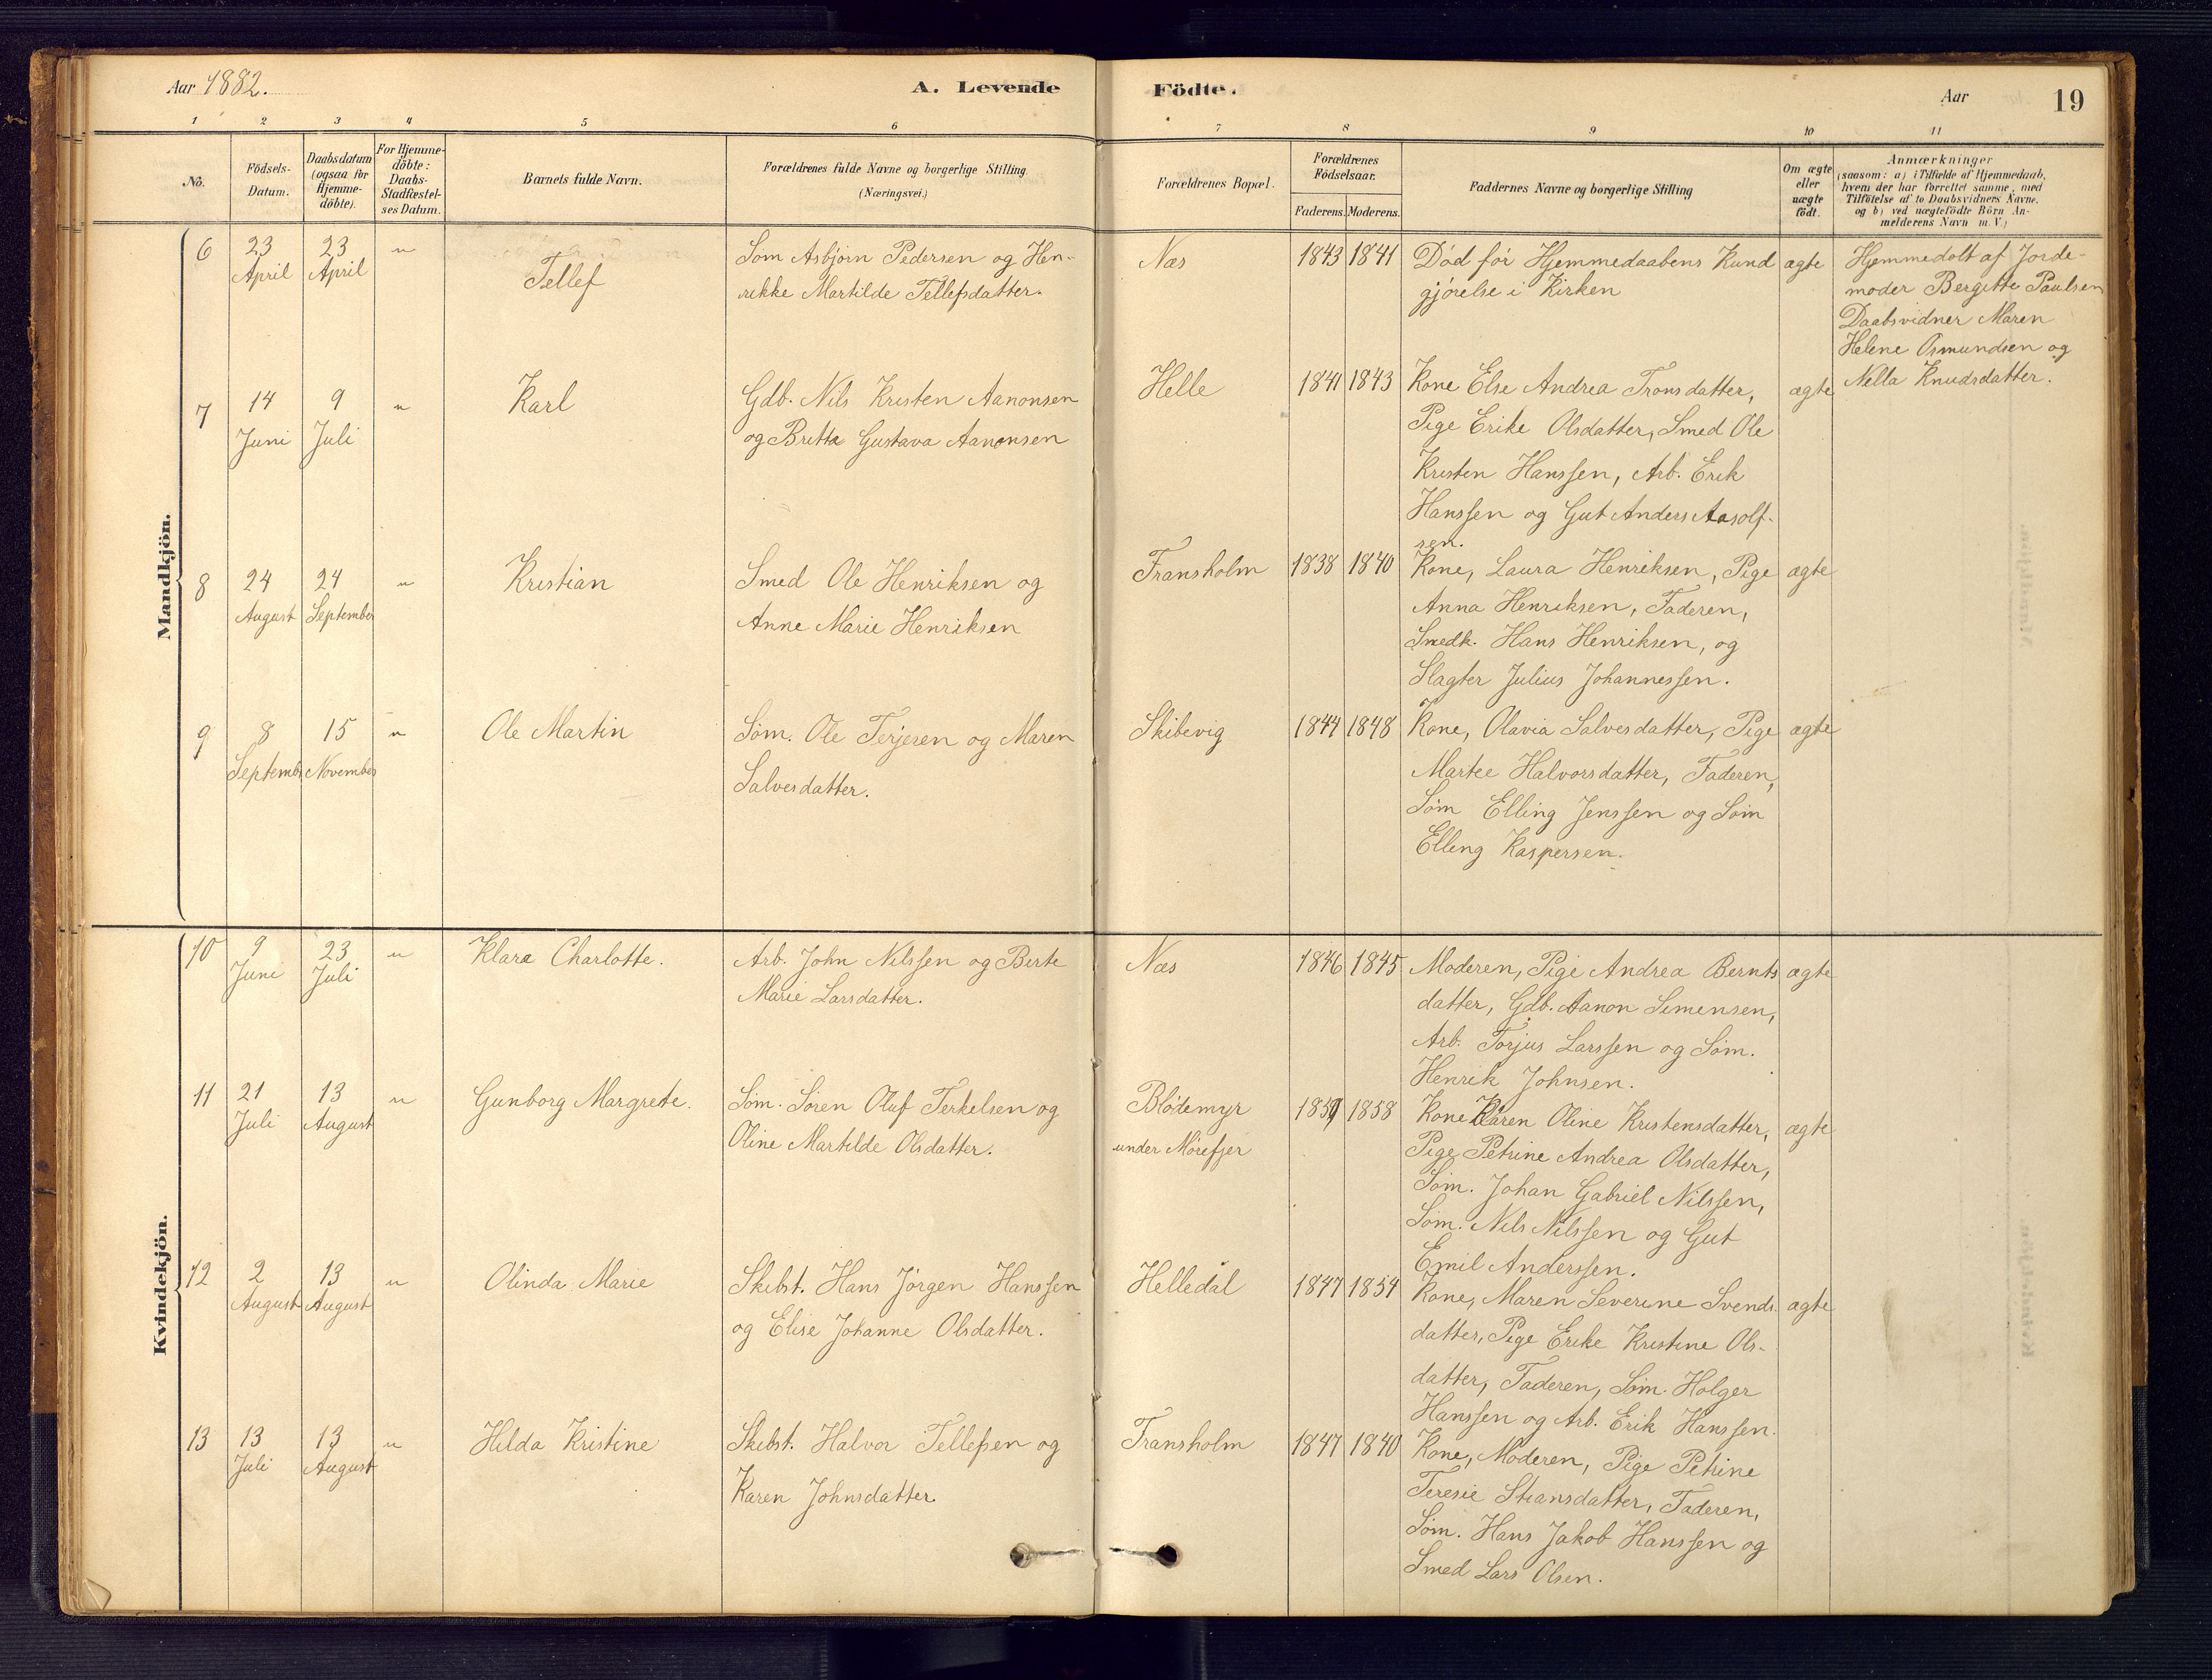 Aar 1882.
A. Levende
Födte.
Aar
19
1 2 3 4 5 6 7 8 9 10 11
No.
Födsels-
Datum.
Daabsdatum
(ogsaa for
Hjemme-
döbte).
For Hjemme-
döbte:
Daabs-
Stadfæstel-
ses Datum.
Barnets fulde Navn.
Forældrenes fulde Navne og borgerlige Stilling
(Næringsvei.)
Forældrenes Bopæl.
Forældrenes
Födselsaar.
Faderens. Moderens.
Faddernes Navne og borgerlige Stilling
Om ægte
eller
uægte
födt.
Anmærkninger
(saasom: a) i Tilfælde af Hjemmedaab,
hvem der har forrettet samme, med
Tilföielse af to Daabsvidners Navne.
og b) ved uægtefödte Börn An-
melderens Navn m. V.)
Mandkjön.
6
23
April
23
April
"
Tellef
Søm Asbjørn Pedersen og Hen-
rikke Martilde Tellefsdatter.
Næs
1843 1841
Død før Hjemmedaabens Kund
gjørelse i Kirken
ægte
Hjemmedøbt af Jorde-
moder Bergitte Paulsen
Daabsvidner Maren
Helene Osmundsen og
Nella Knudsdatter.
7
14
Juni
9
Juli
"
Karl
Gdb. Nils Kristen Aanonsen
og Britta Gustava Aanonsen
Helle
1841 1843
Kone Else Andrea Tronsdatter,
Pige Erike Olsdatter, Smed Ole
Kristen Hanssen, Arb. Erik
Hanssen og Gut Anders Aasolf-
sen.
ægte
8
24
August
24
September
"
Kristian
Smed Ole Henriksen og
Anne Marie Henriksen
Fransholm
1838 1840
Kone, Laura Henriksen, Pige
Anna Henriksen, Faderen,
Smedk. Hans Henriksen, og
Slagter Julius Johannessen.
ægte
9
8
Septemb
15
November
"
Ole Martin
Søm. Ole Terjesen og Maren
Salvesdatter.
Skibevig
1844 1848
Kone, Olavia Salvesdatter, Pige
Martee Halvorsdatter, Faderen,
Søm Elling Jenssen og Søm
Elleng Kaspersen.
ægte
Kvindekjön.
10
9
Juni
23
Juli
"
Klara Charlotte.
Arb. John Nilssen og Berte
Marie Larsdatter.
Næs
1846 1845
Moderen, Pige Andrea Bernts
datter, Gdb. Aanon Simensen,
Arb. Torjus Larssen og Søm.
Henrik Johnsen.
ægte
11
21
Juli
13
August
"
Gunborg Margrete.
Søm. Søren Oluf Terkelsen og
Oline Martilde Olsdatter.
Blødemyr
under Mørefjer
1859 1858
Kone Karen Oline Kristensdatter,
Pige Petrine Andrea Olsdatter,
Søm. Johan Gabriel Nilssen,
Søm. Nils Nilssen og Gut
Emil Anderssen.
ægte
12
2
August
13
August
"
Olinda Marie
Skibst. Hans Jørgen Hanssen
og Elise Johanne Olsdatter.
Helledal
1847 1854
Kone, Maren Severine Svends
datter, Pige Erike Kristine Ols-
datter, Faderen, Søm. Holger
Hanssen og Arb. Erik Hanssen.
ægte
13
13
Juli
13
August
"
Hilda Kristine
Skibst. Halvor Tellefsen og
Karen Johnsdatter.
Fransholm
1847 1840
Kone, Moderen, Pige Petrine
Teresie Stiansdatter, Faderen,
Søm. Hans Jakob Hanssen og
Smed Lars Olsen.